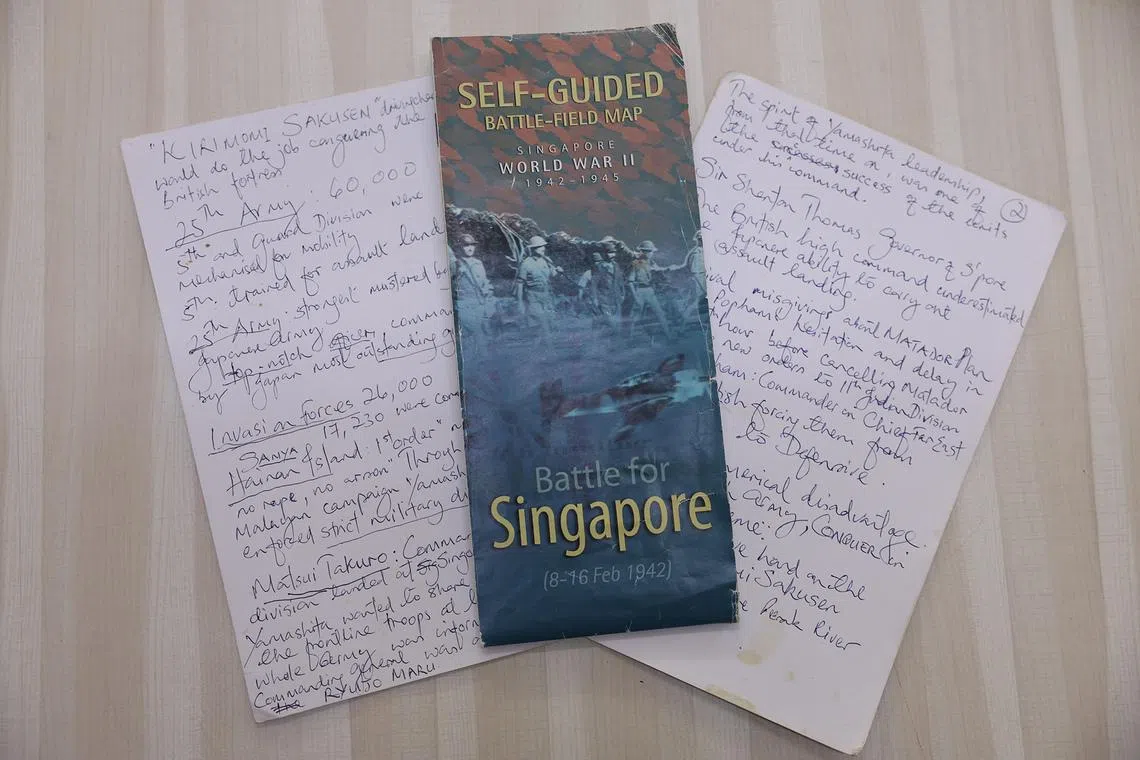 "KIRIMOMI SAKUSEN"
would do the job conquering the
british fortress
25th Army : 60,000
5th and Guard Division were
mechanised for mobility
5th: trained for assault land
25th Army: strongest mustered
Japanese Army
top-notch officers, comma
by Japan most outstanding
Invasion forces 26,000
17,230 were com
SANYA
Hainan Island: 1st order"
no rape, no arson" Through
Malayan campaign Yamash
enforced strict military di
Matsui Takuro: Comma
division landed at Singo
Yamashita wanted to share
the frontline troops at
whole army was inform
Commanding general was
the RYUJO MARU.
SELF-GUIDED
BATTLE-FIELD MAP
SINGAPORE
WORLD WAR II
1942–1945
Battle for
Singapore
(8–16 Feb 1942)
2
The spirit of Yamashita leadership,
from that time on, was one of
the success of the units
under his command.
Sir Shenton Thomas Governor of S'pore
The British high command underestimated
Japanese ability to carry out
assault landing.
ival misgivings about MATADOR Plan
Popham's hesitation and delay in
hour before cancelling Matador
new orders to 11th Indian Division
ham: Commander on Chief Far East
ish forcing them from
to Defensive.
merical disadvantage.
army, CONQUER in
eme:
ve hand on the
i Sakusen
e Perak River